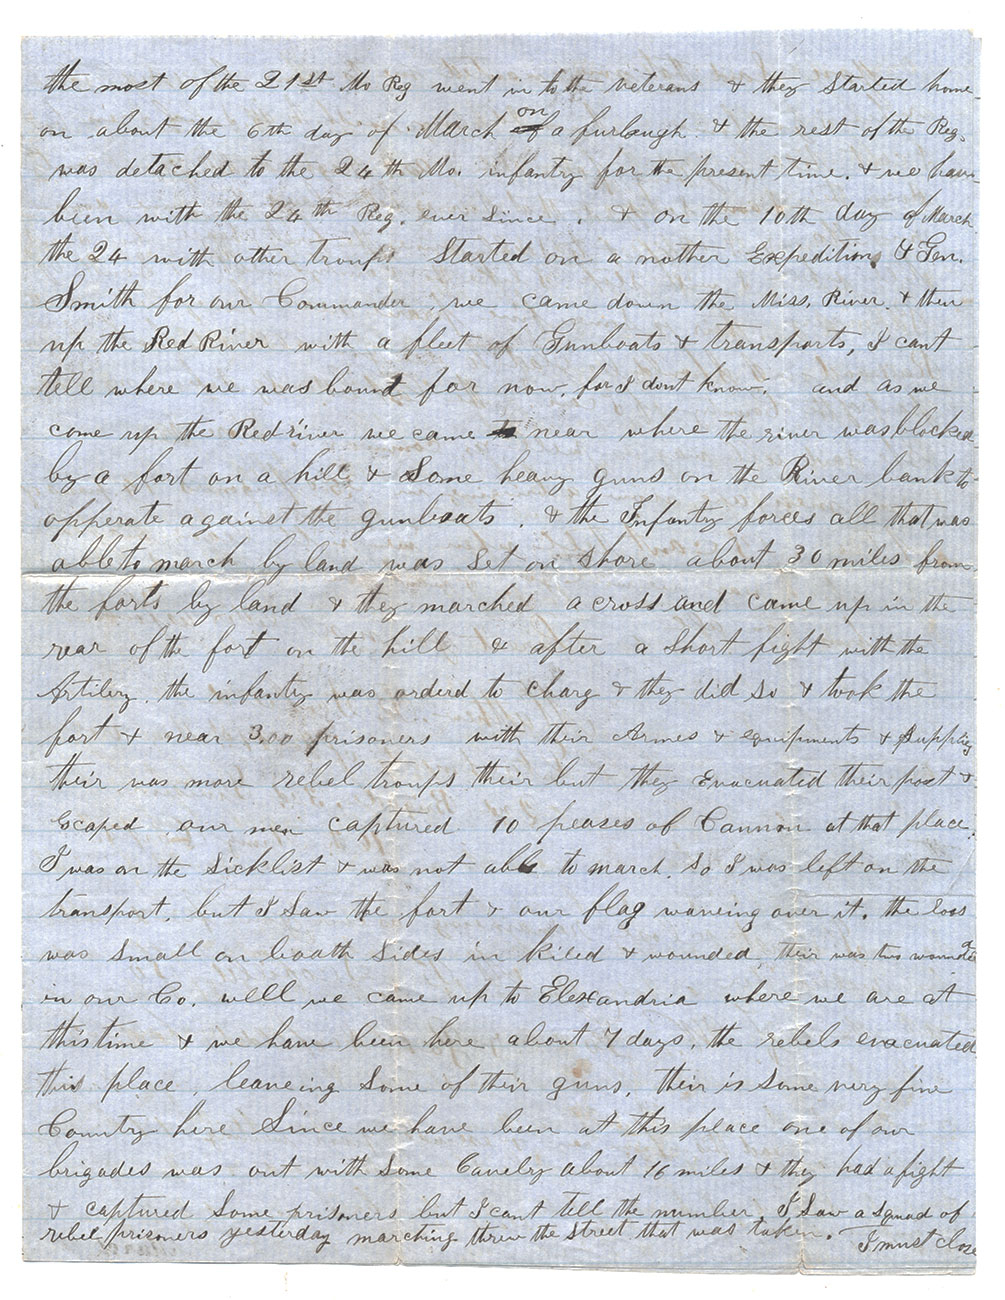 the most of the 21st Mo Reg went in to the veterans & they Started home
on about the 6th day of March on a furlaugh. & the rest of the Reg.
was detached to the 24th Mo. infantry for the present time. & we have
been with the 24th Reg. ever Since. & on the 10th day of March
the 24 with other troups Started on a nother Expedition, & Gen.
Smith for our Commander, we came down the Miss. River & then
up the Red River with a fleet of Gunboats & transports, I cant
tell where we was bound for now, for I dont know. and as we
come up the Red river we came near where the river was blocked
by a fort on a hill & Some heavy guns on the River bank to
opperate against the gunboats. & the Infantry forces all that was
able to march by land was Set on Shore about 30 miles from
the forts by land & they marched across and came up in the
rear of the fort on the hill & after a Short fight with the
Artilery. the infantry was orderd to charg & they did So & took the
fort & near 300 prisoners with their Armes & equipments & Supplies
their was more rebel troups their but they Evacuated their post &
Escaped our men captured 10 peases of Cannon at that place.
I was on the Sicklist & was not able to march. So I was left on the
transport, but I Saw the fort & our flag waveing over it. the loss
was Small on boath Sides in kiled & wounded, their was two wounded
in our Co. well we came up to Elexandria where we are at
this time & we have been here about 7 days, the rebels evacuated
this place, leaveing Some of their guns, their is Some very fine
Country here Since we have been at this place one of our
brigades was out with Some Cavelry about 16 miles & they had a fight
& captured Some prisoners but I cant tell the number. I Saw a Squad of
rebel prisoners yesterday marching threw the Street that was taken. I must close